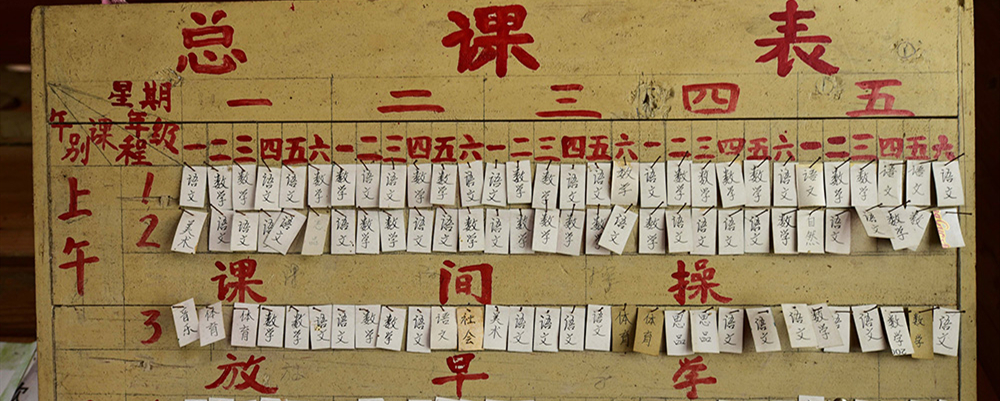 总课表
星期 一 二 三 四 五
午别 课程 年级 一二三四五六 一二三四五六 一二三四五六 一二三四五六 一二三四五六
上午
1 语文 数学 数学 语文 语文 数学 数学 语文 语文 数学 数学 语文 语文 数学 数学 语文 语文 数学 语文 数学 数学 数学 数学 语文 语文 数学 数学 语文 语文 语文
2 美术 语文 语文 语文 语文 数学 数学 语文 语文 数学 数学 语文 数学 语文 语文 数学 语文 语文 语文 数学 自然 语文 语文 数学 数学
课间操
3 音乐 体育 体育 数学 数学 语文 语文 数学 数学 语文 语文 社会 美术 语文 语文 语文 语文 体育 体育 思品 思品 语文 语文 语文 数学 语文 语文 数学 数学 语文
放早学